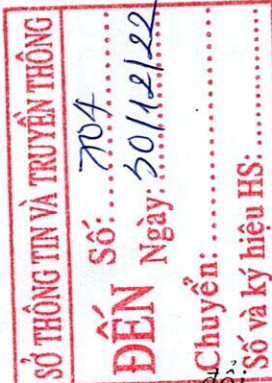 SỞ THÔNG TIN VÀ TRUYỀN THÔNG
ĐẾN
Số: 704
Ngày: 30/12/22
Chuyển:
Số và ký hiệu HS: